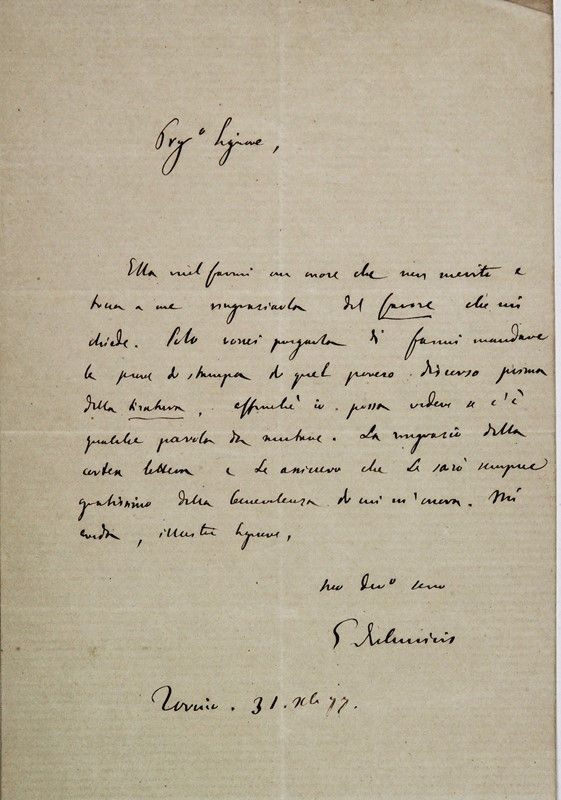 Preg.º Signore,
Ella vuol farmi un onore che non merito e
tocca a me ringraziarla del favore che mi
chiede. Solo vorrei pregarla di farmi mandare
le prove di stampa di quel povero discorso prima
della tiratura, affinché io possa vedere se c'è
qualche parola da mutare. La ringrazio della
cortese lettera e Le assicuro che Le sarò sempre
gratissimo della benevolenza di cui m'onora. Mi
creda, illustre Signore,
suo dev.º servo
E. De Amicis
Torino. 31. 77.